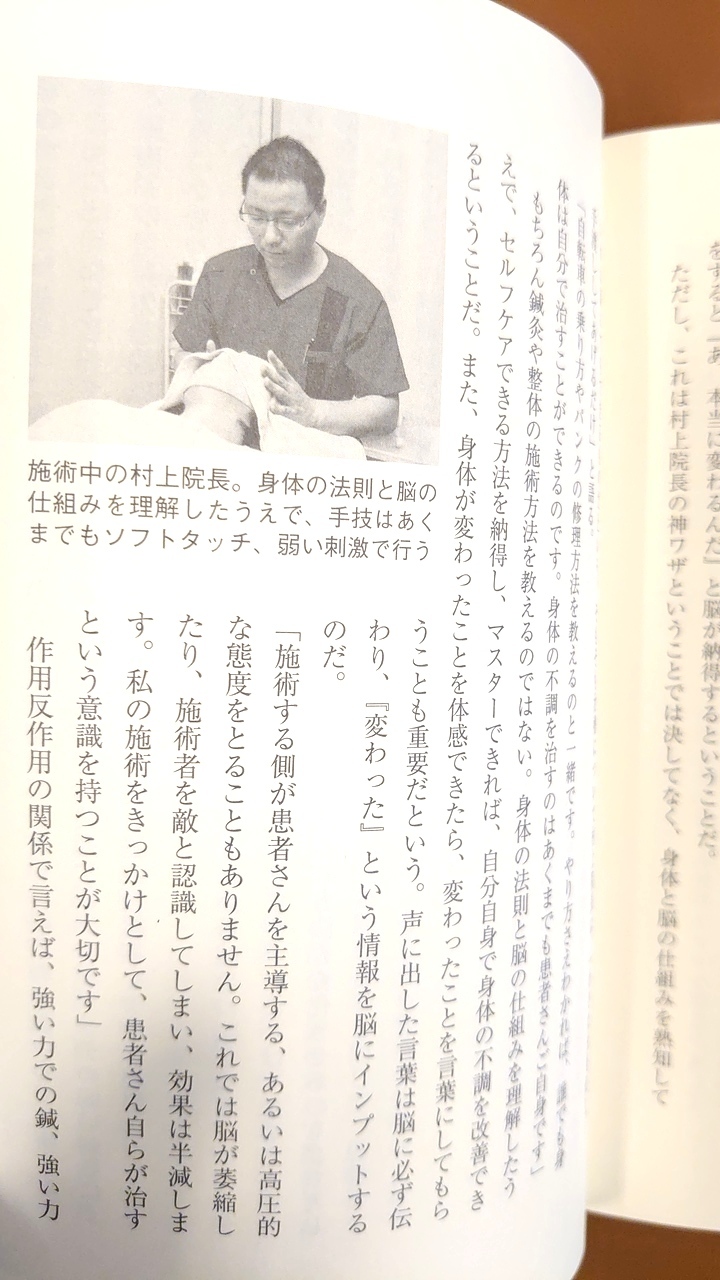 をすると「あ、本当に変わるんだ」と脳が納得するということだ。
ただし、これは村上院長の神ワザということでは決してなく、身体と脳の仕組みを熟知して
だけ」と語る。
「自転車の乗り方やパンクの修理方法を教えるのと一緒です。やり方さえわかれば、誰でも身
体は自分で治すことができるのです。身体の不調を治すのはあくまでも患者さんご自身です」
もちろん鍼灸や整体の施術方法を教えるのではない。身体の法則と脳の仕組みを理解したう
えで、セルフケアできる方法を納得し、マスターできれば、自分自身で身体の不調を改善でき
るということだ。また、身体が変わったことを体感できたら、変わったことを言葉にしてもら
うことも重要だという。声に出した言葉は脳に必ず伝
わり、『変わった』という情報を脳にインプットする
のだ。
「施術する側が患者さんを主導する、あるいは高圧的
な態度をとることもありません。これでは脳が萎縮し
たり、施術者を敵と認識してしまい、効果は半減しま
す。私の施術をきっかけとして、患者さん自らが治す
という意識を持つことが大切です」
作用反作用の関係で言えば、強い力での鍼、強い力
施術中の村上院長。身体の法則と脳の
仕組みを理解したうえで、手技はあく
までもソフトタッチ、弱い刺激で行う